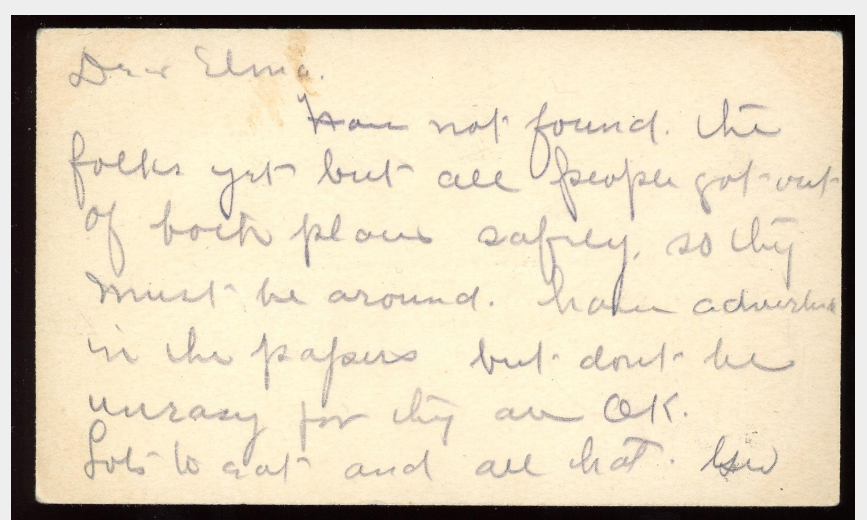 Dear Elma.
Have not found the
folks yet but all people got out
of both places safely, so they
must be around. have advertised
in the papers but dont be
uneasy for they are OK.
Lots to eat and all that.